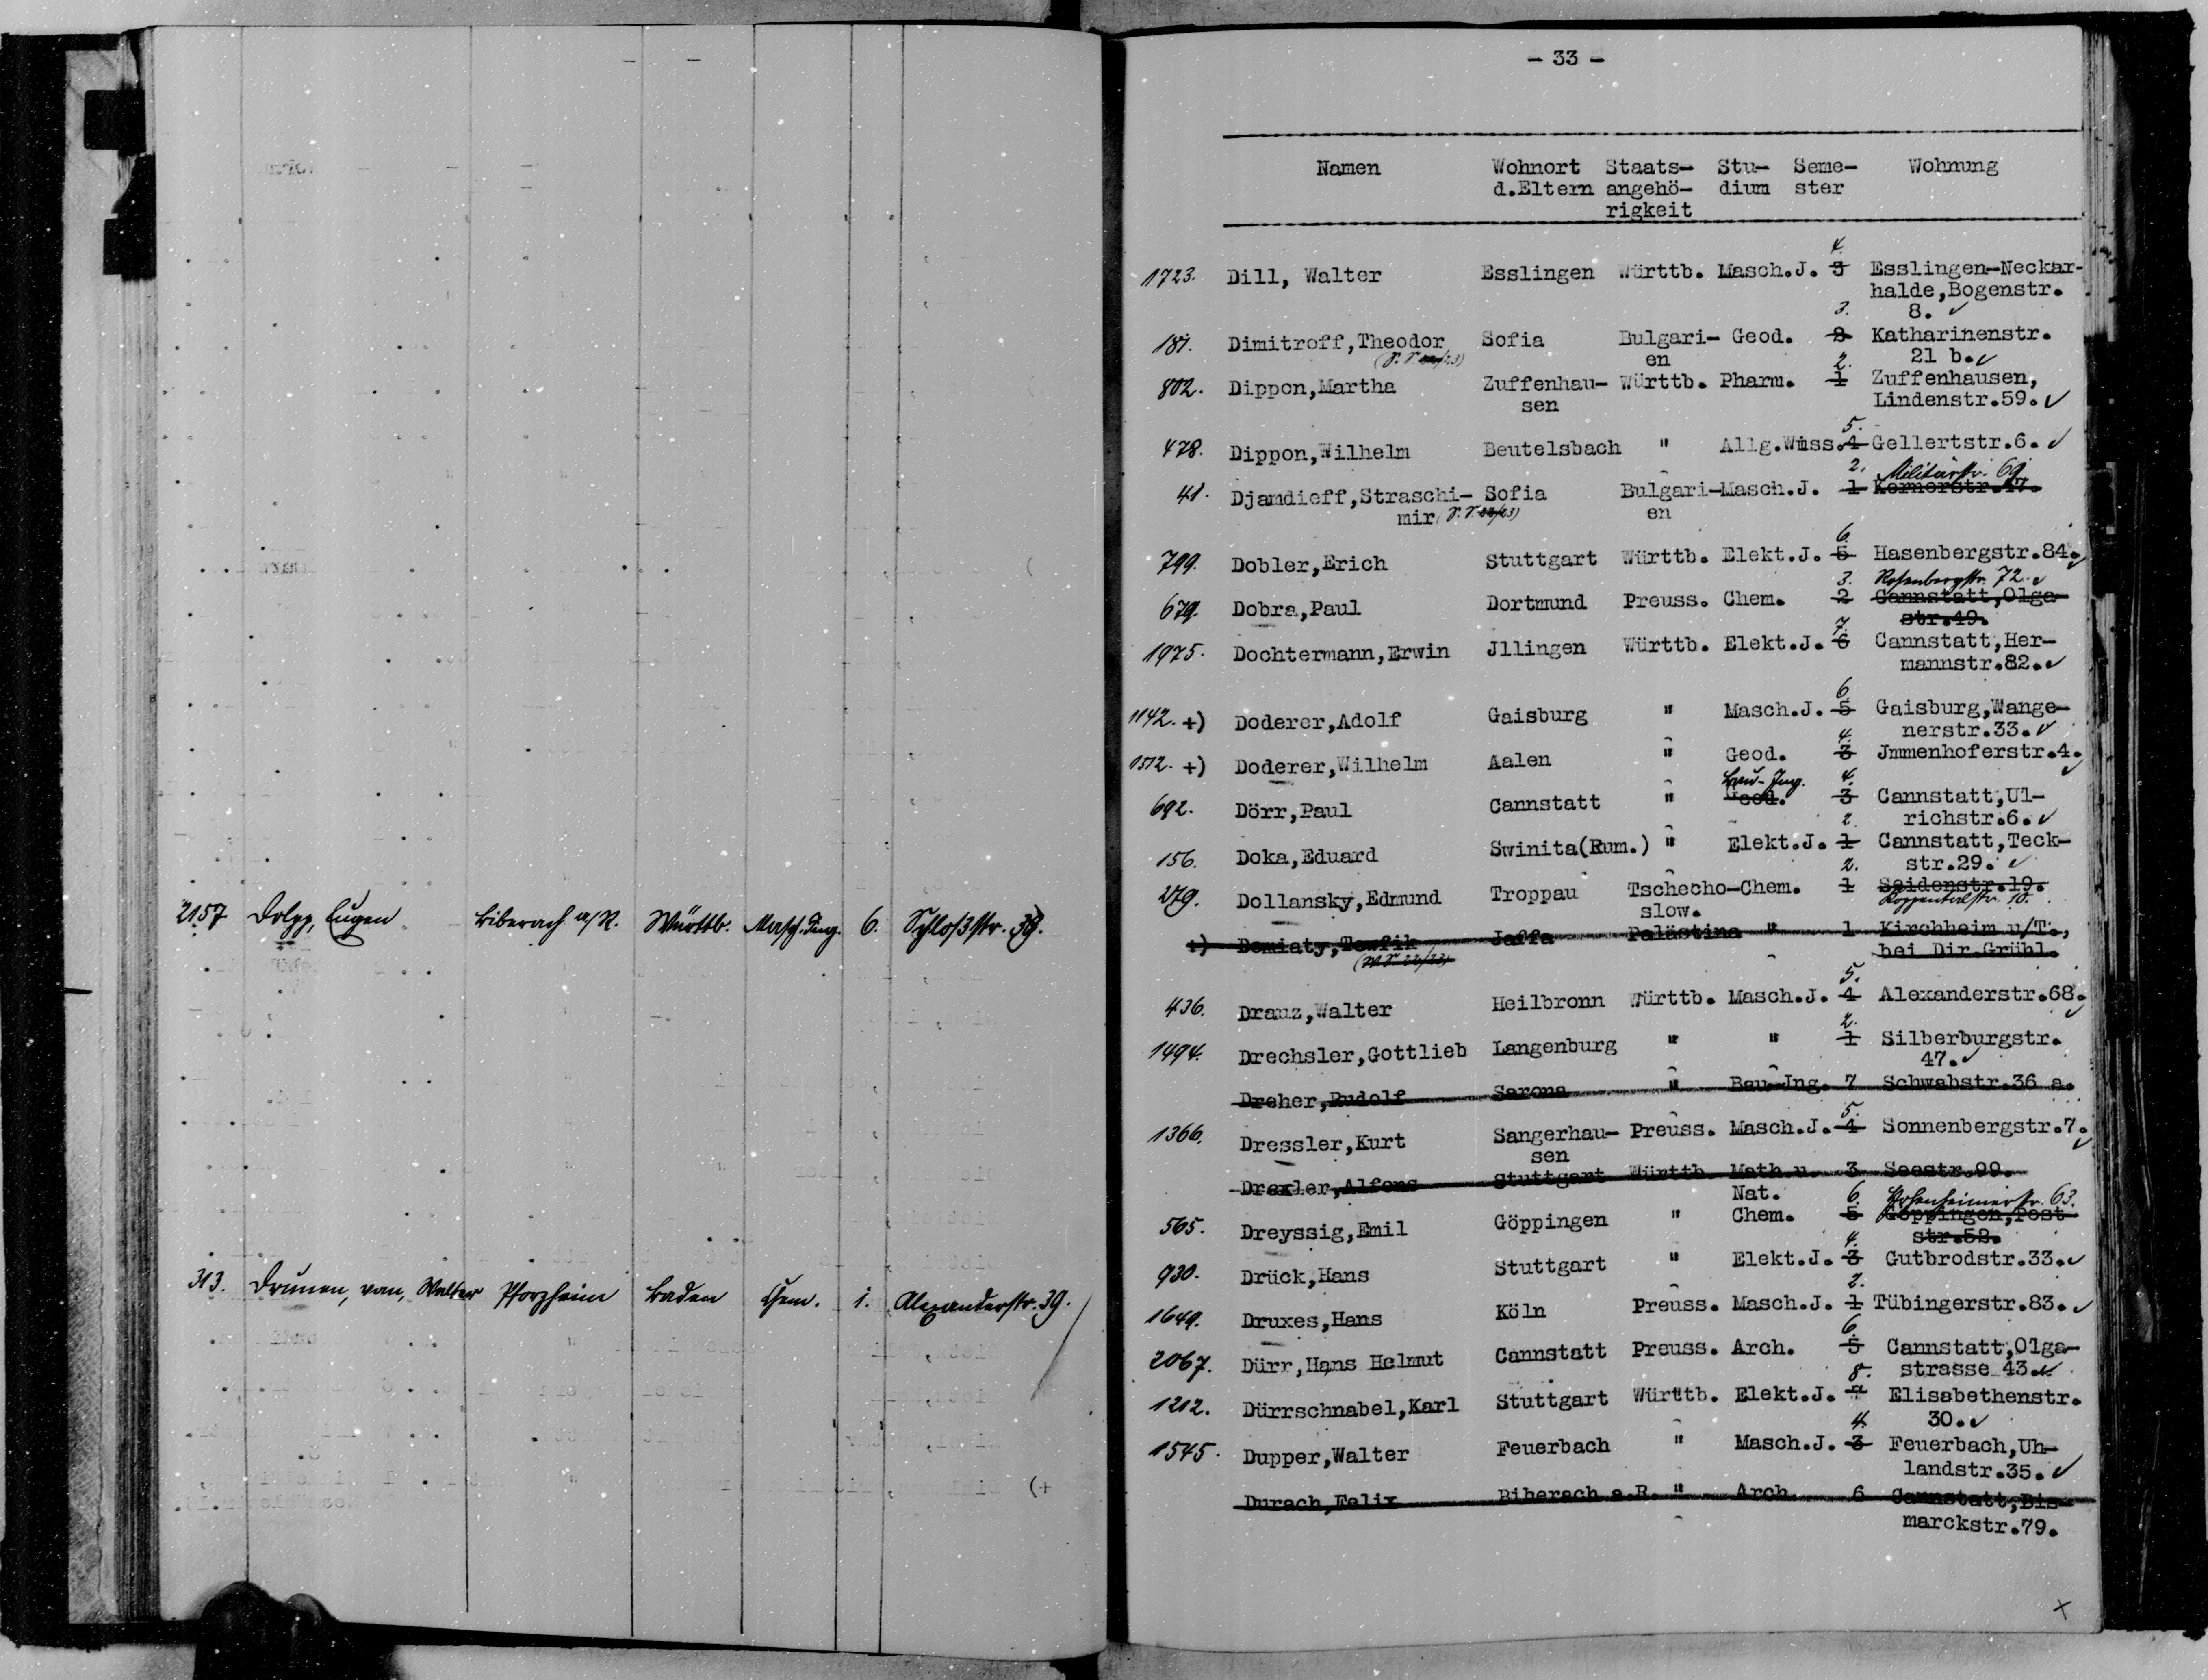 2157 Dolpp, Eugen Biberach a/R. Württb. Masch. Ing. 6. Schloßstr. 39.
313. Drunen, van, Walter Pforzheim Baden Chem. 1. Alexanderstr. 39.
- 33 -
Namen Wohnort Staats- Stu- Seme- Wohnung
d.Eltern angehö- dium ster
rigkeit
4.
1723. Dill, Walter Esslingen Württb. Masch.J. 3 Esslingen-Neckar-
halde,Bogenstr.
3. 8. ✓
181. Dimitroff,Theodor Sofia Bulgari- Geod. 2 Katharinenstr.
en 2. 21 b. ✓
802. Dippon,Martha Zuffenhau- Württb. Pharm. 1 Zuffenhausen,
sen Lindenstr.59. ✓
5.
478. Dippon,Wilhelm Beutelsbach " Allg.Wiss. 4 Gellertstr.6. ✓
2. Militärstr. 69
41. Djamdieff,Straschi- Sofia Bulgari-Masch.J. 1 Kernerstr.47.
mir (S.S. 22/23) en
6.
799. Dobler,Erich Stuttgart Württb. Elekt.J. 5 Hasenbergstr.84. ✓
3. Rosenbergstr. 72. ✓
679. Dobra,Paul Dortmund Preuss. Chem. 2 Cannstatt,Olga-
7. str.49.
1975. Dochtermann,Erwin Jllingen Württb. Elekt.J. 6 Cannstatt,Her-
mannstr.82. ✓
6
1142. +) Doderer,Adolf Gaisburg " Masch.J. 5 Gaisburg,Wange-
4. nerstr.33. ✓
1512. +) Doderer,Wilhelm Aalen " Geod. 3 Jmmenhoferstr.4. ✓
Bau-Ing. 4.
692. Dörr,Paul Cannstatt " Geod. 3 Cannstatt,Ul-
2. richstr.6. ✓
156. Doka,Eduard Swinita(Rum.) " Elekt.J. 1 Cannstatt,Teck-
2. str.29. ✓
279. Dollansky,Edmund Troppau Tschecho-Chem. 1 Seidenstr.19.
slow. Koppentalstr. 10.
+) Domiaty,Tewfik Jaffa Palästina " 1 Kirchheim u/T.,
(W.S. 22/23) bei Dir.Grühl.
5.
436. Drauz,Walter Heilbronn Württb. Masch.J. 4 Alexanderstr.68. ✓
2.
1494. Drechsler,Gottlieb Langenburg " " 1 Silberburgstr.
47. ✓
Dreher,Rudolf Sarona " Bau-Ing. 7 Schwabstr.36 a.
5.
1366. Dressler,Kurt Sangerhau- Preuss. Masch.J. 4 Sonnenbergstr.7. ✓
sen
Drexler,Alfons Stuttgart Württb. Math.u. 3 Seestr.99.
Nat. 6. Hohenheimerstr. 63.
565. Dreyssig,Emil Göppingen " Chem. 5 Göppingen,Post-
4. str.52.
930. Drück,Hans Stuttgart " Elekt.J. 3 Gutbrodstr.33. ✓
2.
1649. Druxes,Hans Köln Preuss. Masch.J. 1 Tübingerstr.83. ✓
6.
2067. Dürr,Hans Helmut Cannstatt Preuss. Arch. 5 Cannstatt,Olga-
8. strasse 43. ✓
1212. Dürrschnabel,Karl Stuttgart Württb. Elekt.J. 7 Elisabethenstr.
4. 30. ✓
1545. Dupper,Walter Feuerbach " Masch.J. 3 Feuerbach,Uh-
landstr.35. ✓
Durach,Felix Biberach a.R. " Arch. 6 Cannstatt,Bis-
marckstr.79.